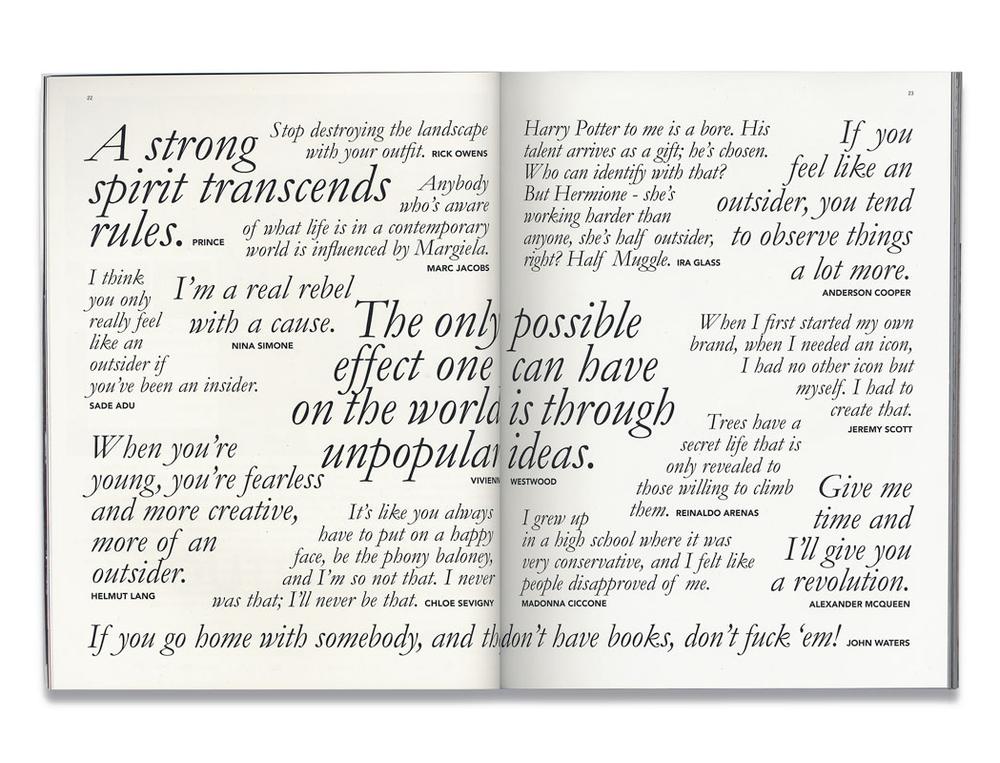 22
A strong
spirit transcends
rules. PRINCE
Stop destroying the landscape
with your outfit. RICK OWENS
Anybody
who's aware
of what life is in a contemporary
world is influenced by Margiela.
MARC JACOBS
I think
you only
really feel
like an
outsider if
you've been an insider.
SADE ADU
I'm a real rebel
with a cause.
NINA SIMONE
The only possible
effect one can have
on the world is through
unpopular ideas.
VIVIENN WESTWOOD
When you're
young, you're fearless
and more creative,
more of an
outsider.
HELMUT LANG
It's like you always
have to put on a happy
face, be the phony baloney,
and I'm so not that. I never
was that; I'll never be that. CHLOE SEVIGNY
23
Harry Potter to me is a bore. His
talent arrives as a gift; he's chosen.
Who can identify with that?
But Hermione - she's
working harder than
anyone, she's half outsider,
right? Half Muggle. IRA GLASS
If you
feel like an
outsider, you tend
to observe things
a lot more.
ANDERSON COOPER
When I first started my own
brand, when I needed an icon,
I had no other icon but
myself. I had to
create that.
JEREMY SCOTT
Trees have a
secret life that is
only revealed to
those willing to climb
them. REINALDO ARENAS
I grew up
in a high school where it was
very conservative, and I felt like
people disapproved of me.
MADONNA CICCONE
Give me
time and
I'll give you
a revolution.
ALEXANDER MCQUEEN
If you go home with somebody, and th don't have books, don't fuck 'em! JOHN WATERS